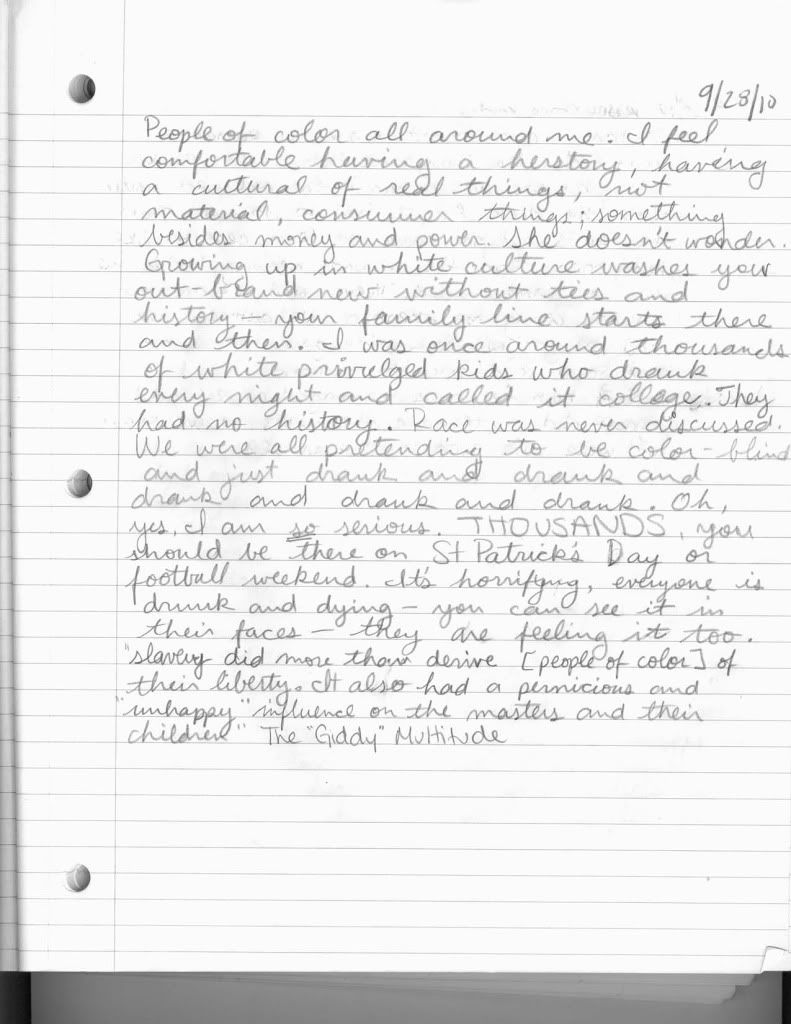 9/28/10
People of color all around me. I feel
comfortable having a herstory, having
a cultural of real things, not
material, consumer things; something
besides money and power. She doesn't wonder.
Growing up in white culture washes your
out-brand new without ties and
history – your family line starts there
and then. I was once around thousands
of white privulged kids who drank
every night and called it college. They
had no history. Race was never discussed.
We were all pretending to be color-blind
and just drank and drank and
drank and drank and drank. Oh,
yes, I am so serious. THOUSANDS, you
should be there on St Patrick's Day or
football weekend. It's horrifyng, everyone is
drunk and dying – you can see it in
their faces – they are feeling it too.
"slavery did more than derive [people of color] of
their liberty. It also had a pernicious and
"unhappy" influence on the masters and their
children" The "Giddy" Multitude